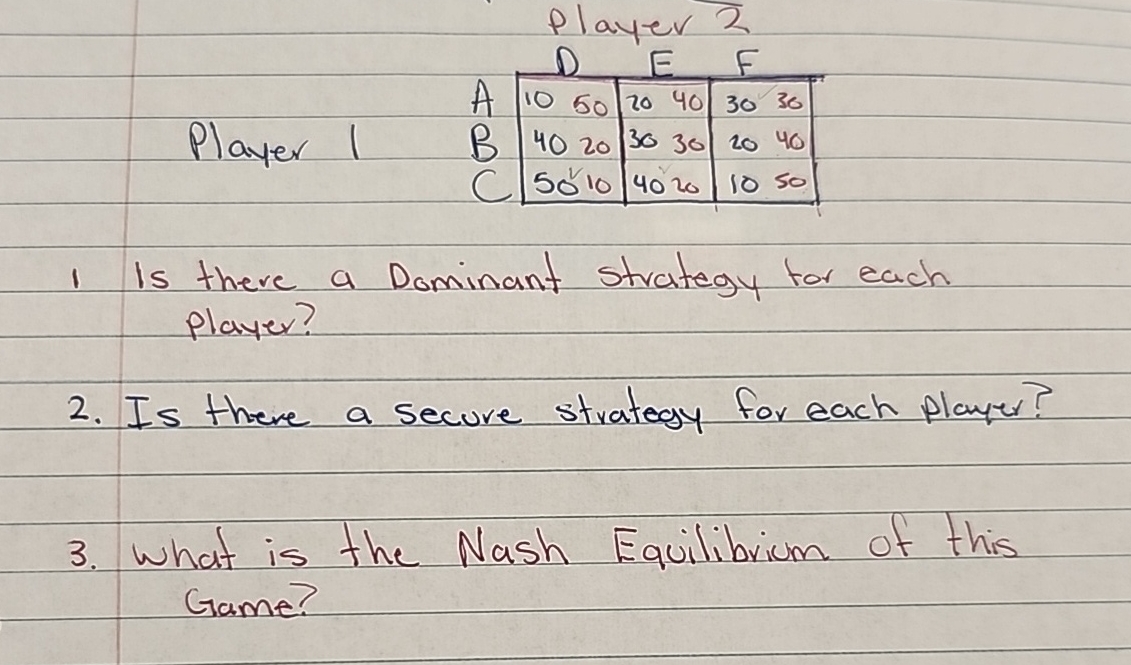 Player 2
D E F
A 10 50 20 40 30 30
Player 1 B 40 20 30 30 20 40
C 50 10 40 20 10 50
1 Is there a Dominant strategy for each
player?
2. Is there a secure strategy for each player?
3. What is the Nash Equilibrium of this
Game?